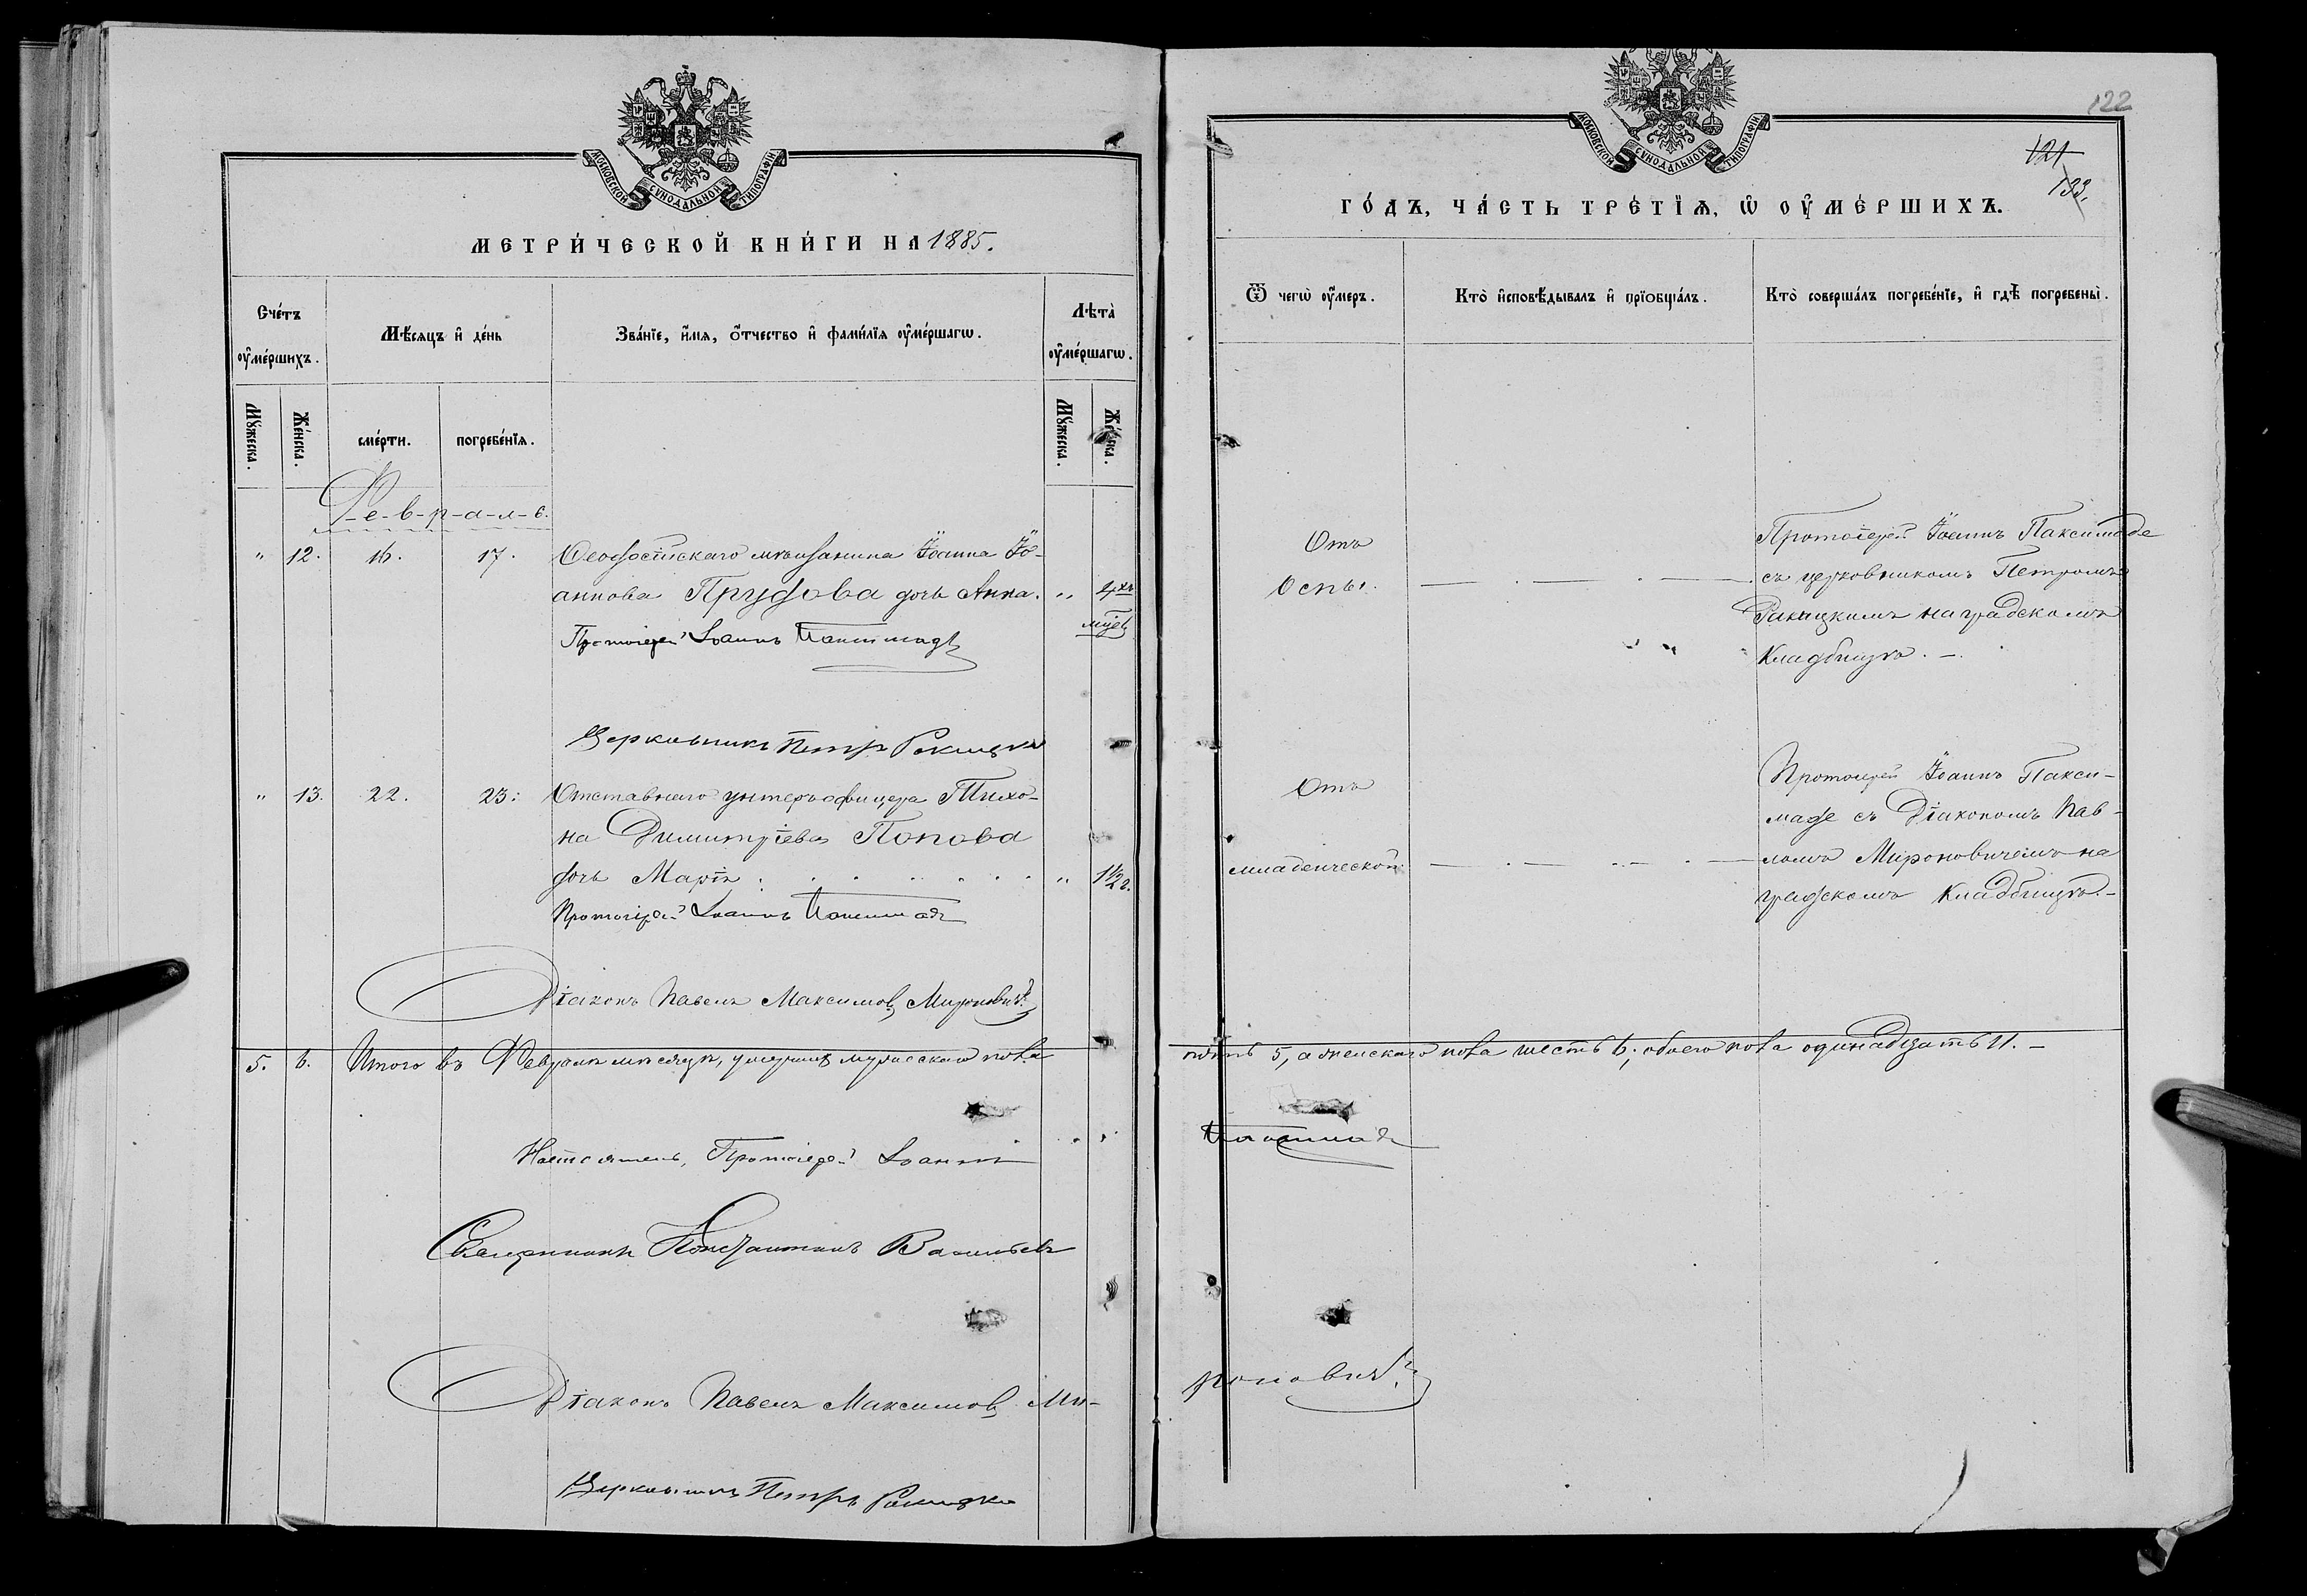 МОСКОВСКОЙ СУНОДАЛЬНОЙ ТИПОГРАФІИ
МЕТРИ́ЧЕСКОЙ КНИ́ГИ НА 1885.
Сче́тъ оу҆ме́ршихъ.
Мѣ́сяцъ и҆ де́нь
Зва́нїе, и҆́мя, ѻ҆́тчество и҆ фами́лїя оу҆ме́ршагѡ.
Лѣта̀ оу҆ме́ршагѡ.
Мꙋ́жеска.
Же́нска.
сме́рти.
погребе́нїя.
Мꙋ́жеска.
Же́нска.
Ф-е-в-р-а-л-ь.
" 12. 16. 17. Ѳеодосійскаго мѣщанина Іоанна Іо-
аннова Прудова дочь Анна. " 4хъ
мѣс
Протоіерей Іоаннъ Паксимаде
Церковникъ Петръ Ракицкій
" 13. 22. 23. Отставнаго унтеръ-офицера Тихо-
на Димитріева Попова
дочь Марія . . . . . . " 1½ г.
Протоіерей Іоаннъ Паксимаде
Діаконъ Павелъ Максимовъ Мироновичъ
5. 6. Итого въ Февралѣ мѣсяцѣ, умершихъ мужескаго пола
Настоятель, Протоіерей Іоаннъ
Священникъ Константинъ Васильевъ
Діаконъ Павелъ Максимовъ Ми-
Церковникъ Петръ Ракицкій
122
121
133.
МОСКОВСКОЙ СУНОДАЛЬНОЙ ТИПОГРАФІИ
ГО́ДЪ, ЧА́СТЬ ТРЕ́ТЇЯ, Ѡ҆ ОУ҆МЕ́РШИХЪ.
Ѿ чегѡ̀ оу҆́меръ.
Кто̀ и҆сповѣ́дывалъ и҆ прїобща́лъ.
Кто̀ соверша́лъ погребе́нїе, и҆ гдѣ̀ погребены̀.
Отъ
Оспы.
Протоіерей Іоаннъ Паксимаде
съ церковникомъ Петромъ
Ракицкимъ на градскомъ
Кладбищѣ. –
Отъ
младенческой
Протоіерей Іоаннъ Пакси-
маде съ Діакономъ Пав-
ломъ Мироновичемъ на
градскомъ Кладбищѣ. –
пять 5, а женскаго пола шесть 6; обоего пола одинадцать 11. –
Паксимаде
роновичъ